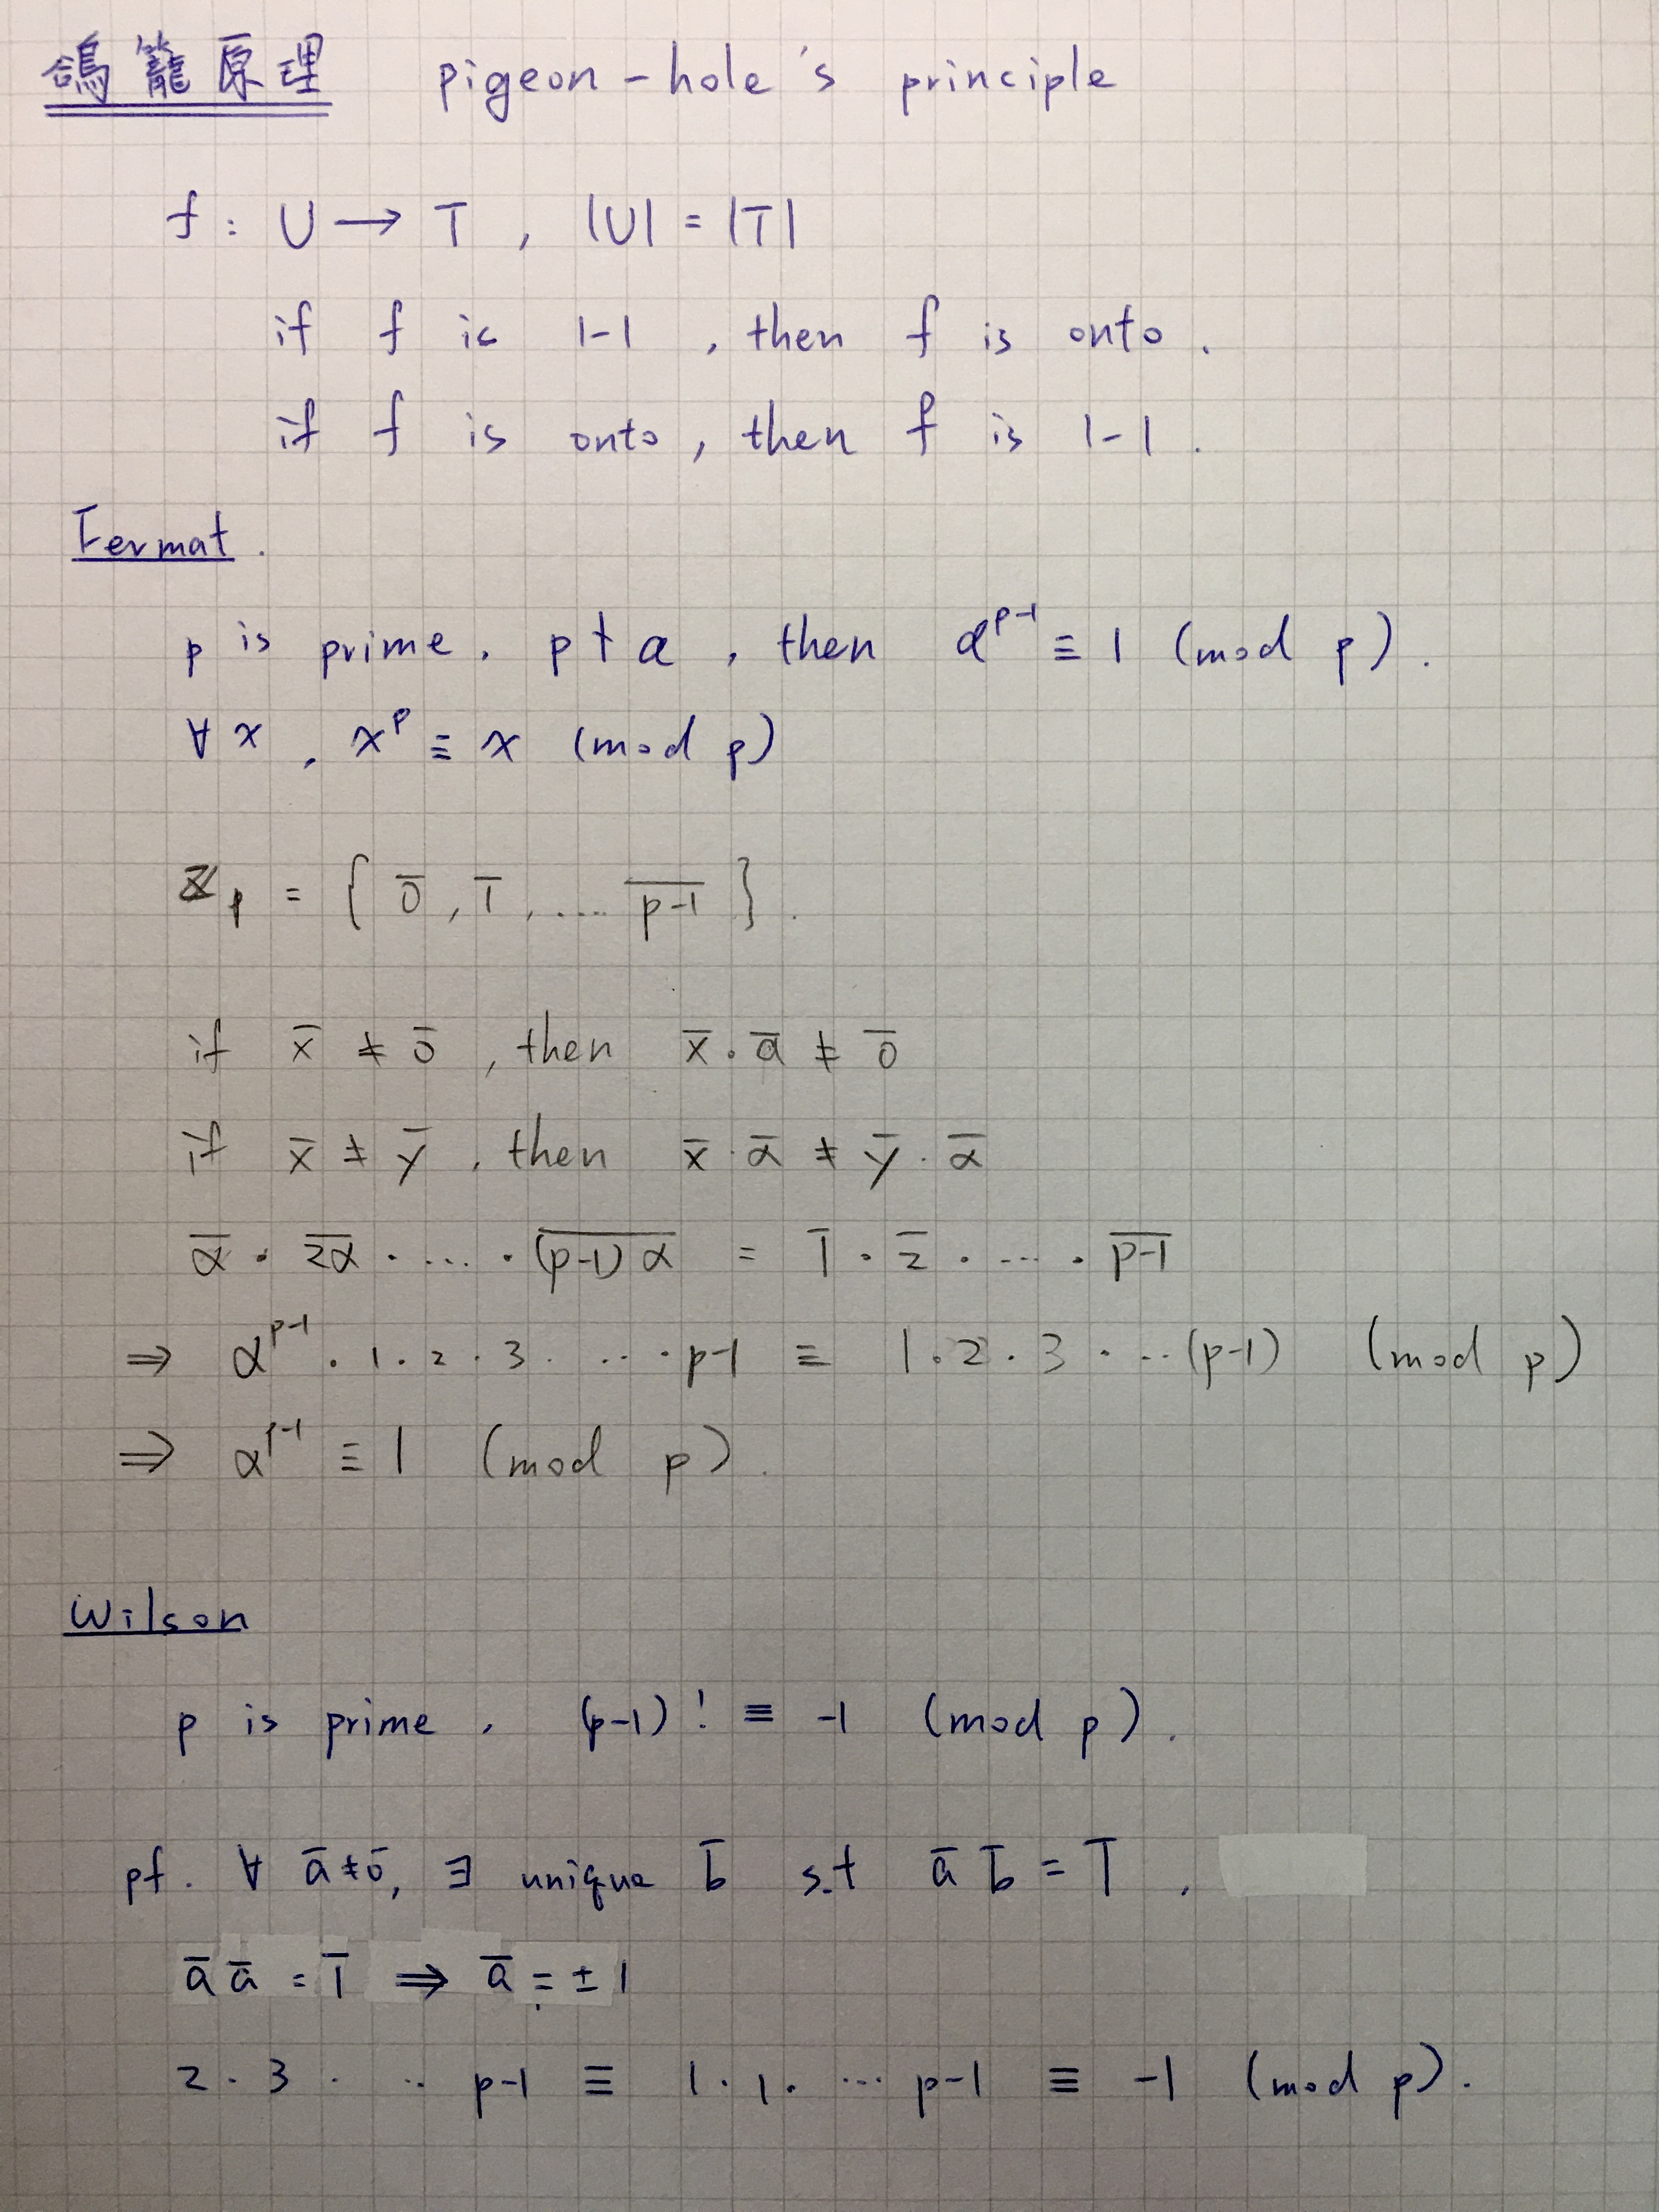 鴿籠原理 pigeon-hole's principle
f: U → T, |U| = |T|
if f is 1-1, then f is onto.
if f is onto, then f is 1-1.
Fermat.
p is prime. p ∤ a, then a^{p-1} ≡ 1 (mod p).
∀x, x^p ≡ x (mod p)
ℤ_p = { 0̅, 1̅, .... \overline{p-1} }.
if x̅ ≠ 0̅, then x̅·a̅ ≠ 0̅
if x̅ ≠ y̅, then x̅·a̅ ≠ y̅·a̅
a̅ · \overline{2a} · .... · \overline{(p-1)a} = 1̅ · 2̅ · .... · \overline{p-1}
⇒ a^{p-1} · 1 · 2 · 3 · ... · p-1 ≡ 1 · 2 · 3 · ... (p-1) (mod p)
⇒ a^{p-1} ≡ 1 (mod p).
Wilson
p is prime, (p-1)! ≡ -1 (mod p).
pf. ∀ a̅≠0̅, ∃ unique b̅ s.t a̅ b̅ = 1̅,
a̅ a̅ = 1̅ ⇒ a̅ = ±1
2 · 3 · ·· p-1 ≡ 1 · 1 · ... p-1 ≡ -1 (mod p).